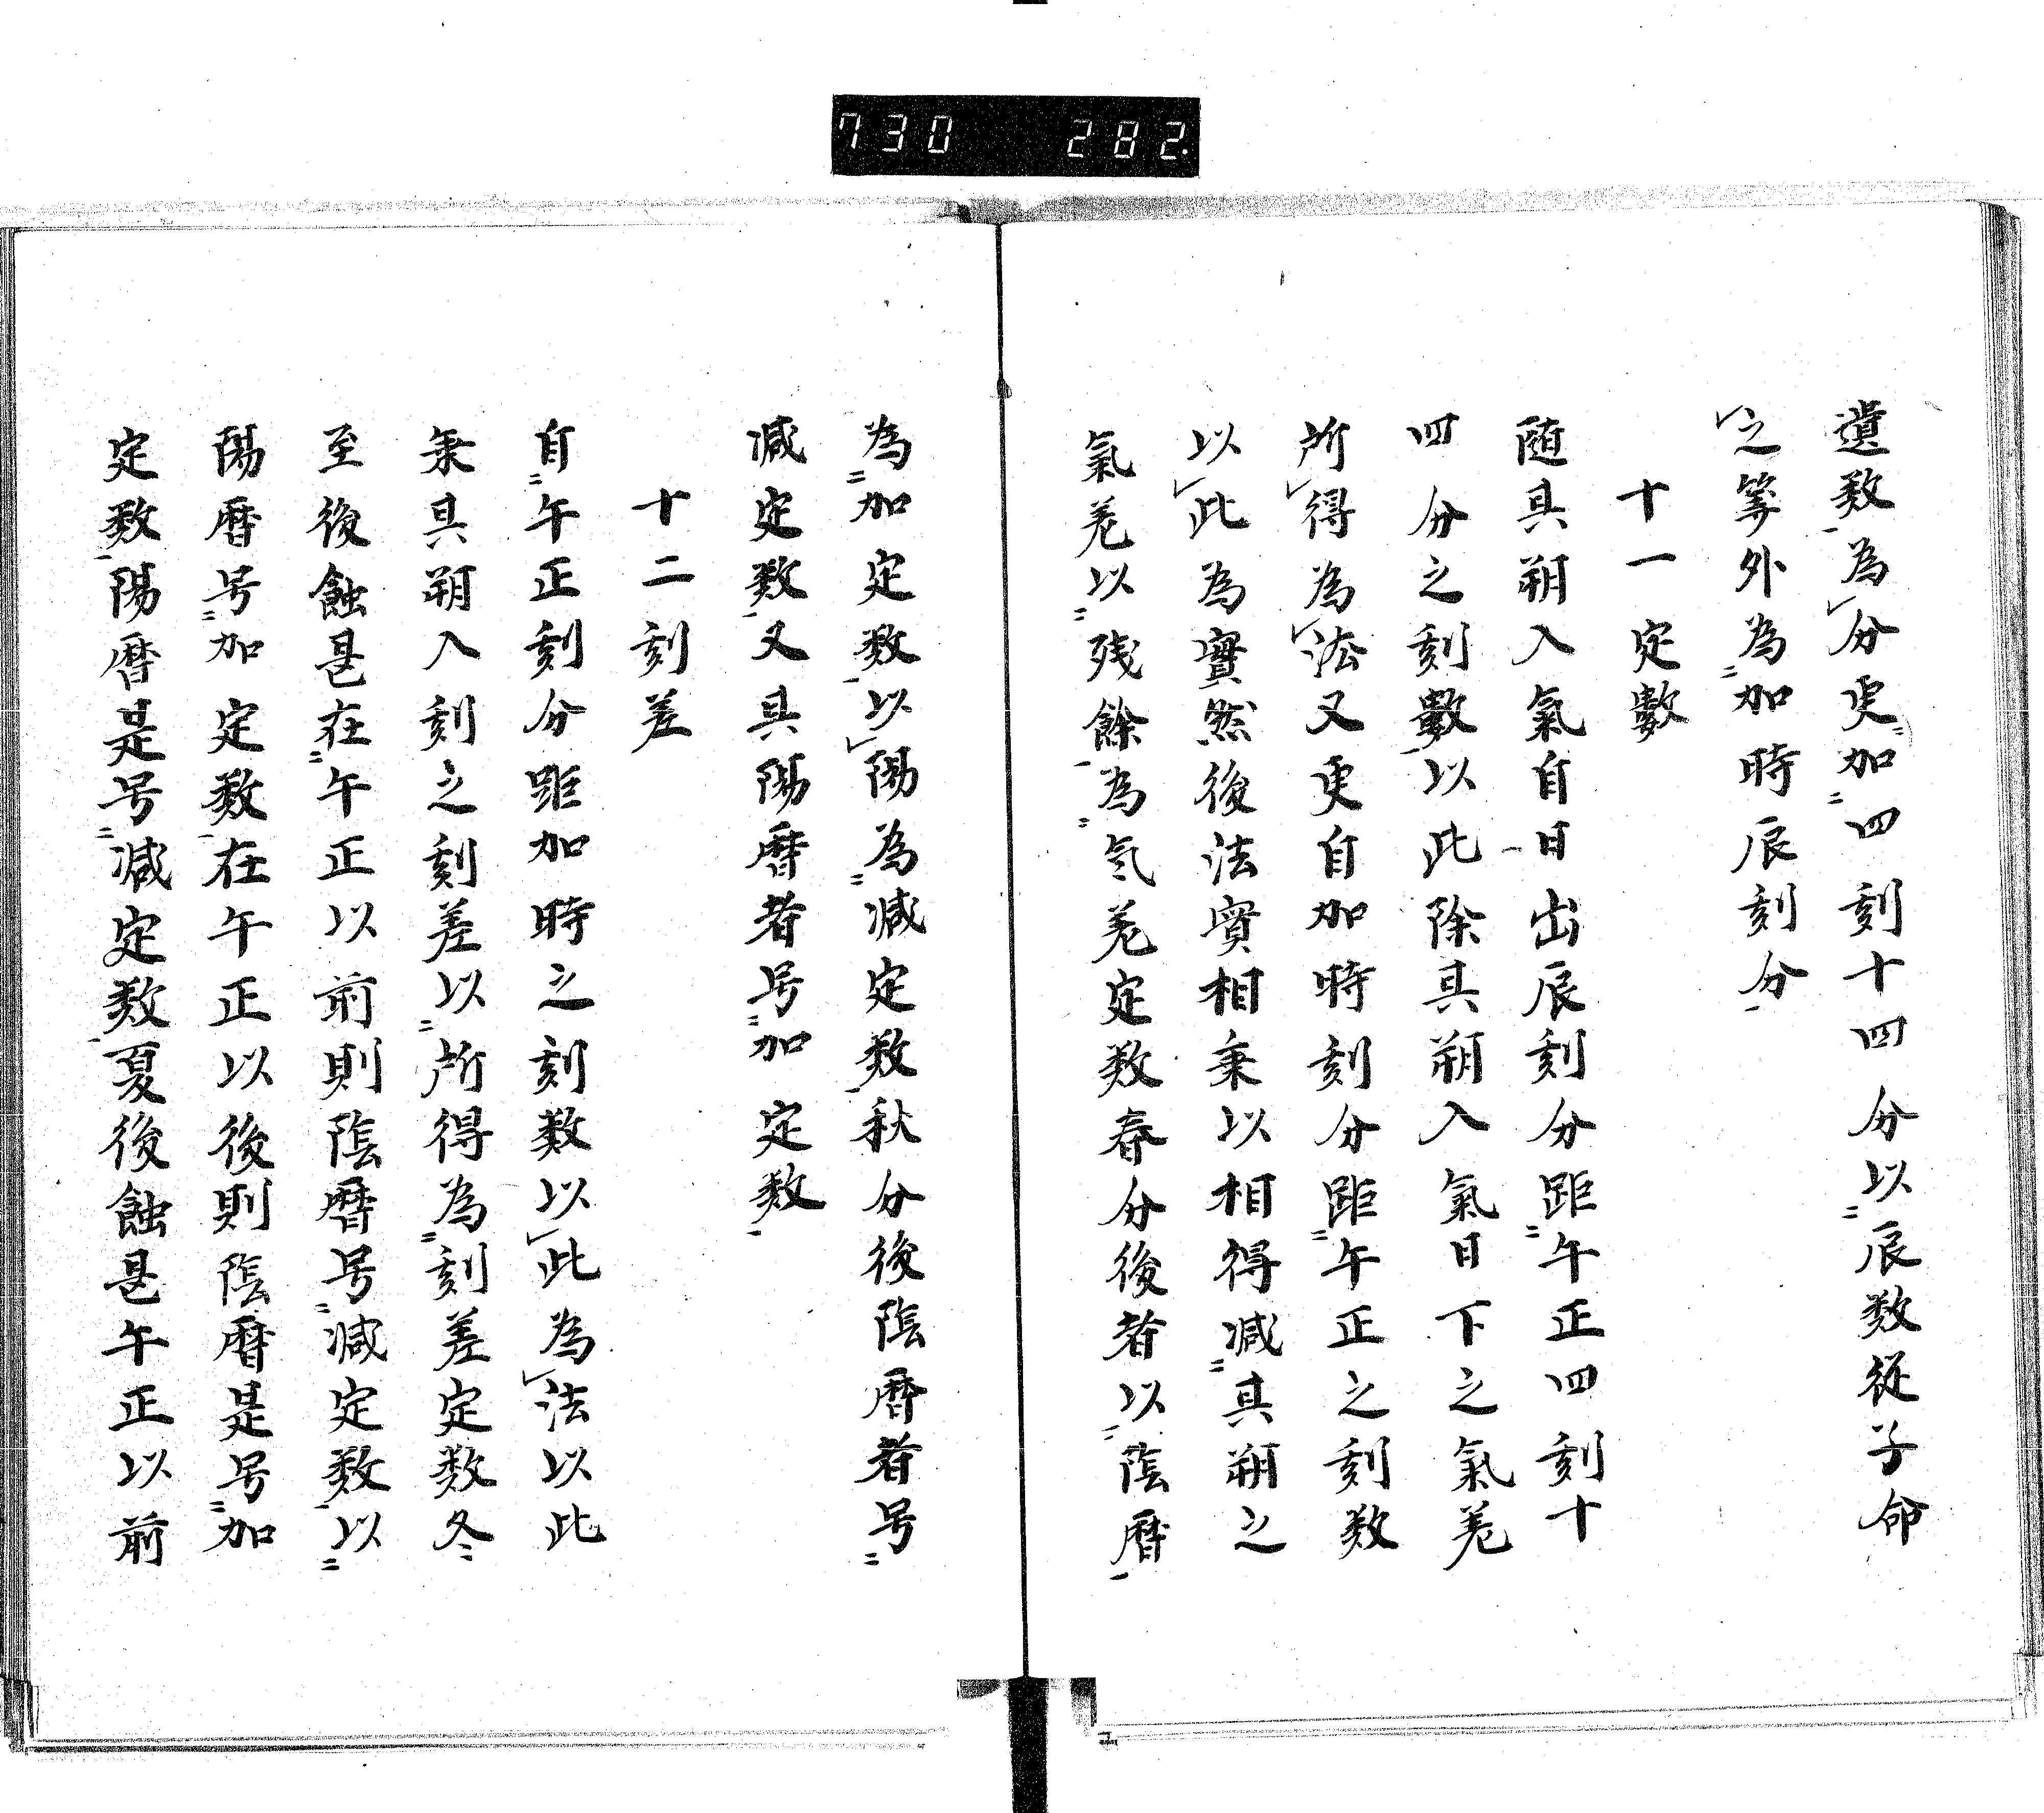 730 282.
遺数為分更加四刻十四分以辰数從子命
之筭外為加時辰刻分
十一定數
随其朔入氣自日出辰刻分距午正四刻十
四分之刻數以此除其朔入氣日下之氣差
所得為法又更自加時刻分距午正之刻数
以此為實然後法實相乗以相得减其朔之
氣差以残餘為気差定数春分後者以陰暦
為加定数以陽為减定数秋分後陰暦者号
减定数又其陽暦者号加定数
十二刻差
自午正刻分距加時之刻数以此為法以此
乗其朔入刻之刻差以所得為刻差定数冬
至後蝕甚在午正以前則陰暦号减定数以
陽暦号加定数在午正以後則陰暦是号加
定数陽暦是号减定数夏後蝕甚午正以前